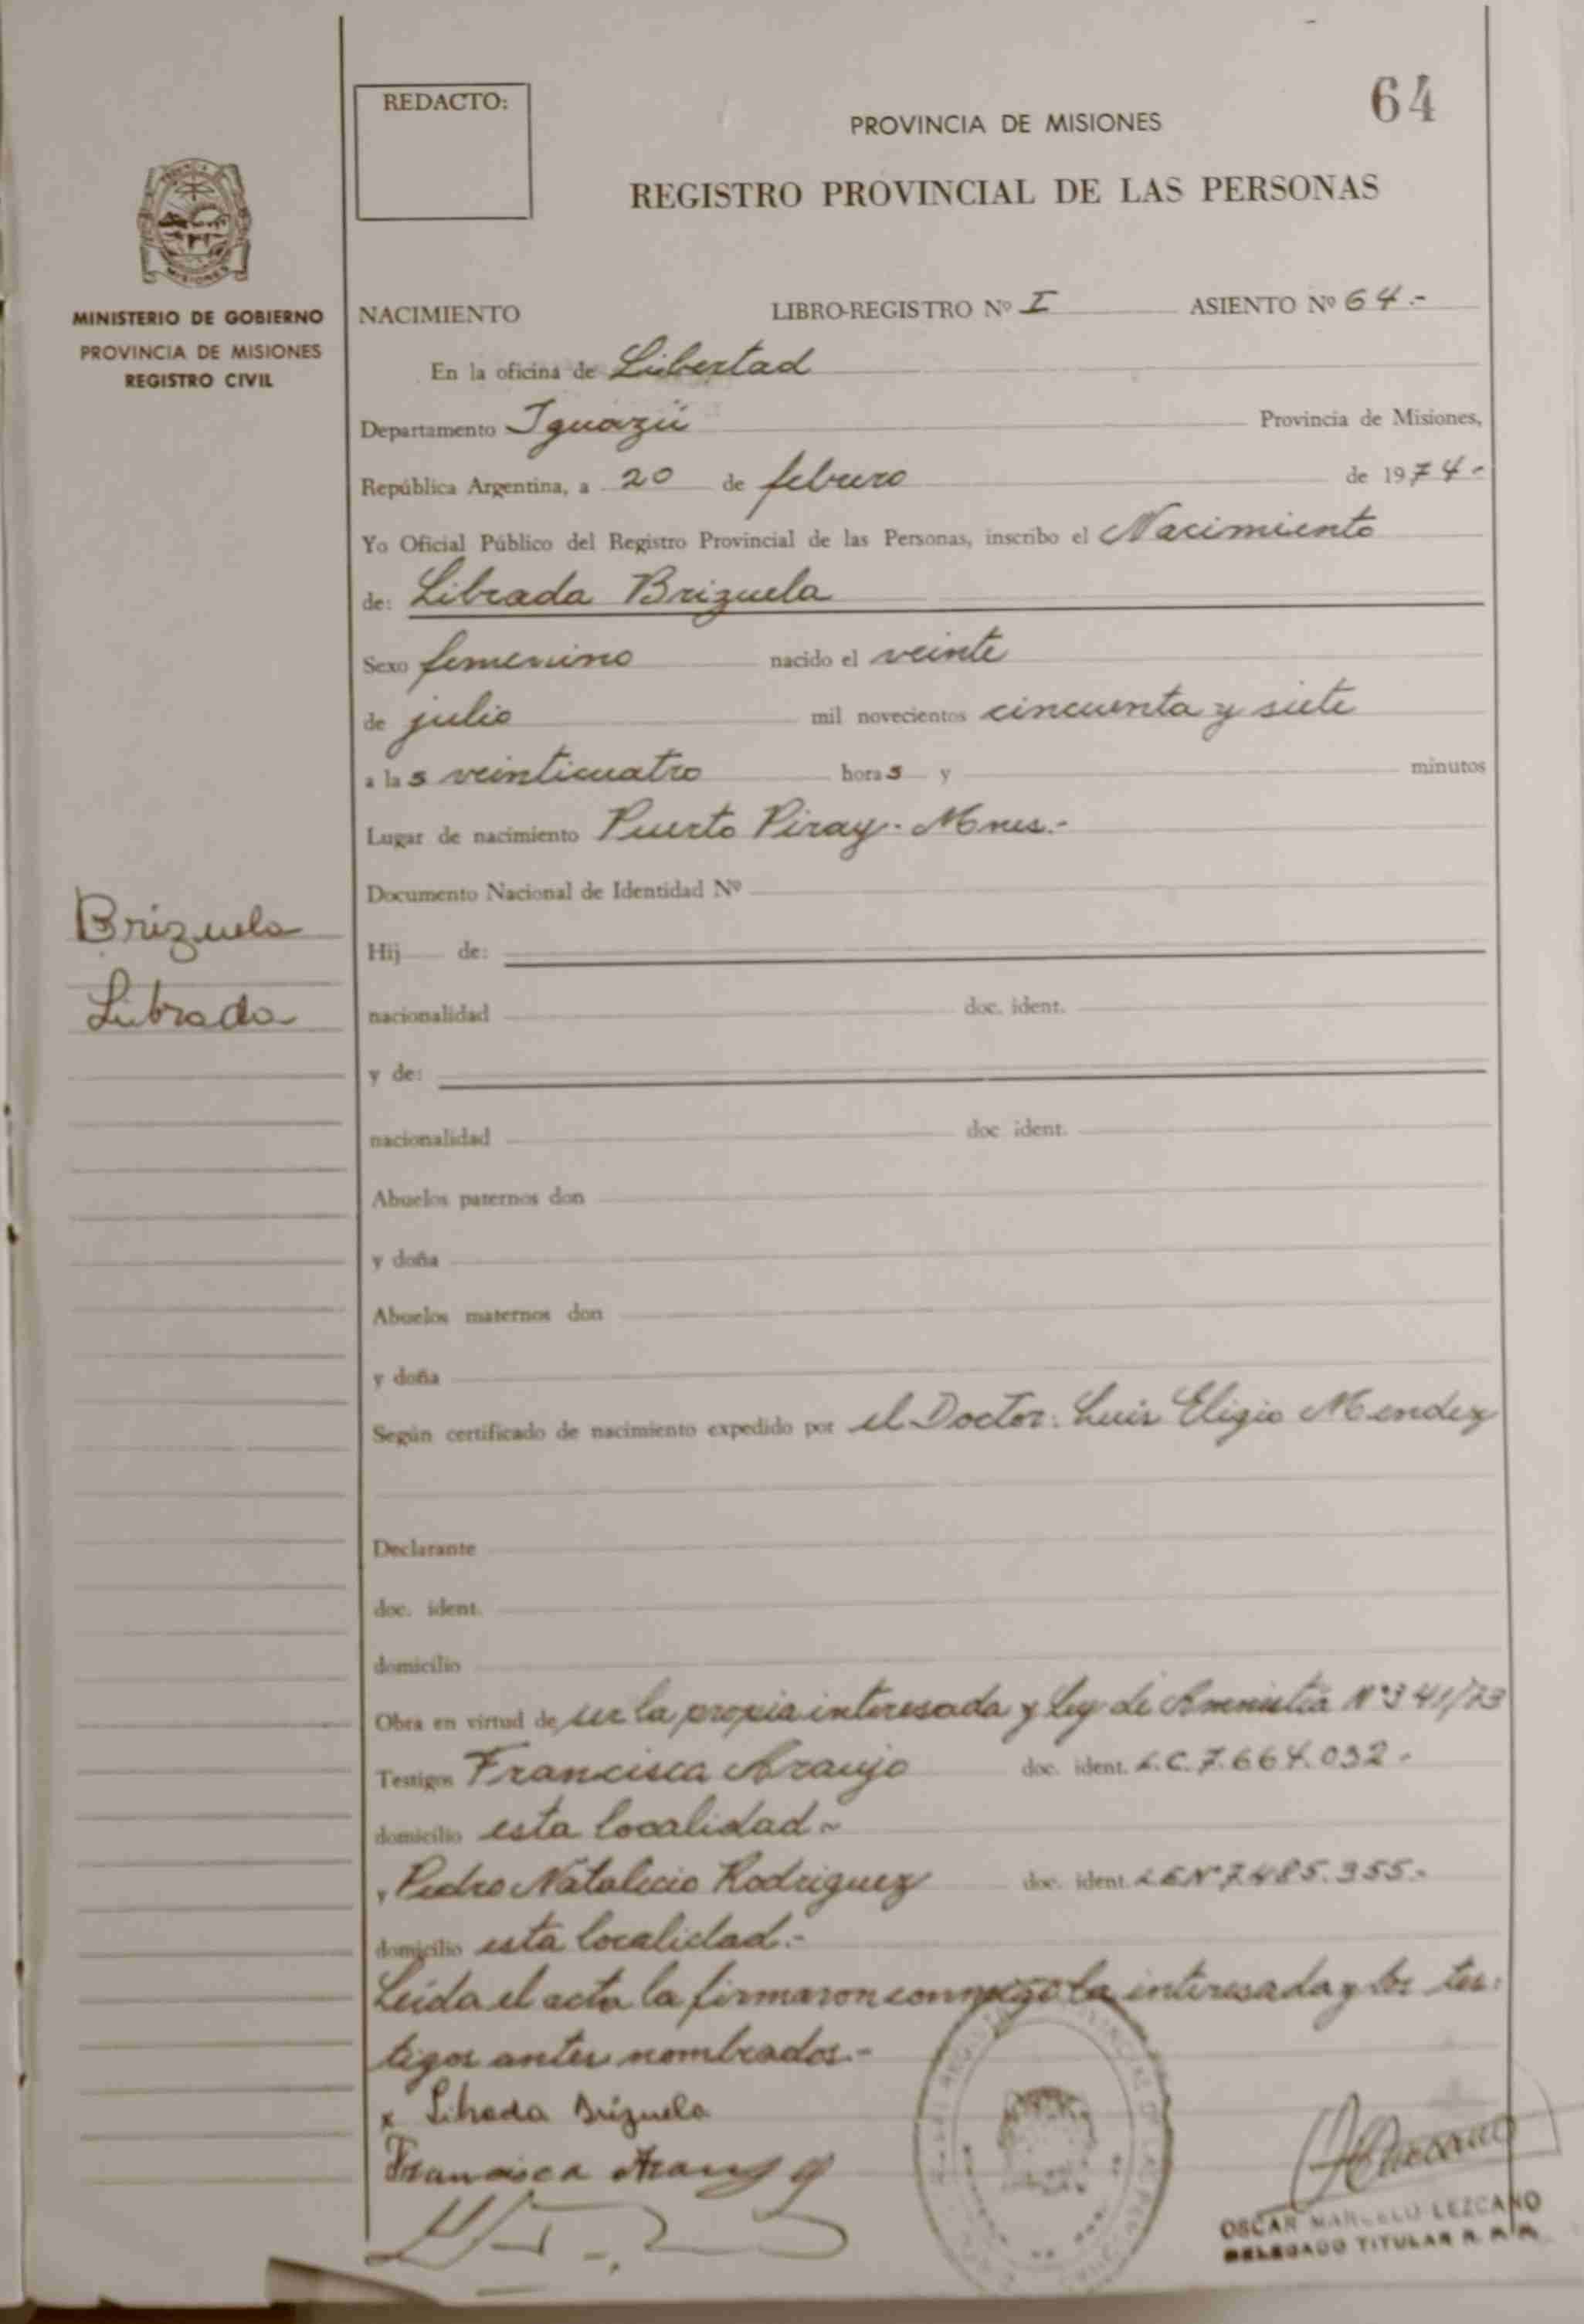 REDACTO:
64
PROVINCIA DE MISIONES
REGISTRO PROVINCIAL DE LAS PERSONAS
MISIONES
MINISTERIO DE GOBIERNO
PROVINCIA DE MISIONES
REGISTRO CIVIL
NACIMIENTO LIBRO-REGISTRO Nº I ASIENTO Nº 64.-
En la oficina de Libertad
Departamento Iguazú Provincia de Misiones,
República Argentina, a 20 de febrero de 1974-
Yo Oficial Público del Registro Provincial de las Personas, inscribo el Nacimiento
de: Librada Brizuela
Sexo femenino nacido el veinte
de julio mil novecientos cincuenta y siete
a las veinticuatro horas y minutos
Lugar de nacimiento Puerto Piray. Mnes.-
Documento Nacional de Identidad Nº
Brizuela
Librada
Hij de:
nacionalidad doc. ident.
y de:
nacionalidad doc ident.
Abuelos paternos don
y doña
Abuelos maternos don
y doña
Según certificado de nacimiento expedido por el Doctor: Luis Eligio Mendez
Declarante
doc. ident.
domicilio
Obra en virtud de ser la propia interesada y Ley de Amnistia Nº 341/73
Testigos Francisca Araujo doc. ident. L.C. 7.664.032-
domicilio esta localidad-
y Pedro Natalicio Rodriguez doc. ident. LE Nº 7.485.355.-
domicilio esta localidad.-
Leida el acta la firmaron conmigo la interesada y los tes-
tigos antes nombrados.-
x Librada Brizuela
Francisca Araujo
OSCAR MARCELO LEZCANO
DELEGADO TITULAR R. P. P.